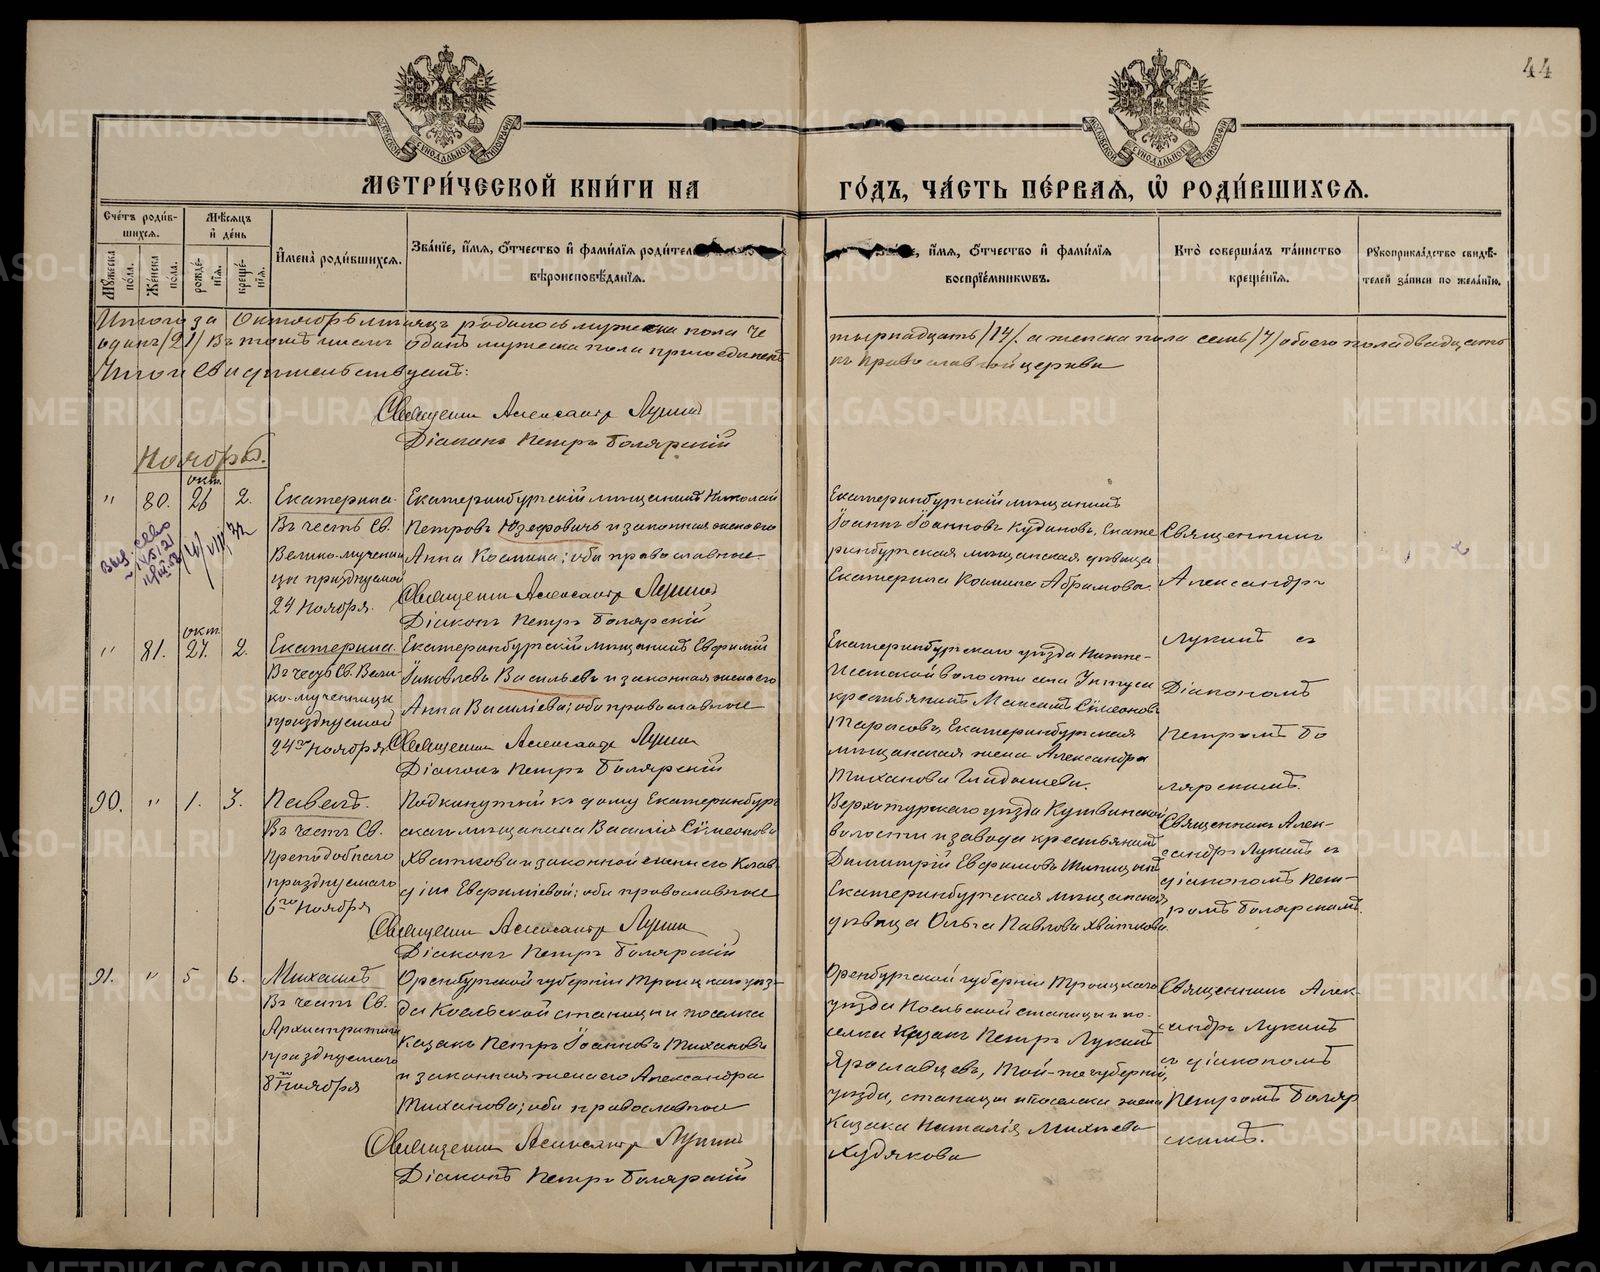 44
МЕТРИ́ЧЕСКОЙ КНИ́ГИ НА
ГО́ДЪ, ЧА́СТЬ ПЕ́РВАЯ, Ѡ҆ РОДИ́ВШИХСЯ.
Сче́тъ роди́в-
шихся.
Мѣ́сяцъ
и҆ де́нь
Му́жеска по́ла.
Же́нска по́ла.
рожде́-
нїя.
креще́-
нїя.
И҆мена̀ роди́вшихся.
Зва́нїе, и҆́мя, ѻ҆́тчество и҆ фами́лїя родител
вѣроисповѣ́данїя.
, и҆́мя, ѻ҆́тчество и҆ фами́лїя
воспрїе́мниковъ.
Кто̀ соверша́лъ та́инство
креще́нїя.
Рꙋкоприкла́дство свидѣ́-
телей за́писи по жела́нїю.
Итого за Октябрь мѣсяцъ родилось мужеска пола че
тырнадцать /14/. а женска пола семь /7/ обоего пола двадцать
одинъ /21/ Въ томъ числѣ одинъ мужеска пола присоединенъ
къ православной церкви
Свидѣтельствуемъ:
Священникъ Александръ Лукинъ
Дiаконъ Петръ Болярскiй
Ноябрь.
" 80. окт. 26 2.
Екатерина.
Въ честь Св.
Велико-мучени
цы празднуемой
24 Ноября.
Екатеринбургскiй мѣщанинъ Николай
Петровъ Юзефовичъ и законная жена его
Анна Космина; оба православные
Священникъ Александръ Лукинъ
Дiаконъ Петръ Болярскiй
Екатеринбургскiй мѣщанинъ
Iоаннъ Iоанновъ Кудановъ, Екате
ринбургская мѣщанская дѣвица
Екатерина Космина Абрамова.
Священникъ
Александръ
Лукинъ съ
Дiакономъ
Петромъ Бо
лярскимъ.
" 81. окт 27. 2.
Екатерина.
Въ честь Св. Вели
ко-мученицы
празднуемой
24го Ноября
Екатеринбургскiй мѣщанинъ Евфимiй
Iаковлевъ Васильевъ и законная жена его
Анна Василiева; оба православные
Священникъ Александръ Лукинъ
Дiаконъ Петръ Болярскiй
Екатеринбургскаго уѣзда Нижне-
Исетской волости села
крестьянинъ Максимъ Сѵмеоновъ
Тарасовъ, Екатеринбургская
мѣщанская жена Александра
Тиханова Гладышева.
90. " 1. 3.
Павелъ.
Въ честь Св.
Преподобнаго
празднуемаго
6го Ноября
Подкинутый къ дому Екатеринбург
скаго мѣщанина Василiя Сѵмеонова
Хваткова и законной жены его Клав
дiи Евфимiевой; оба православные
Священникъ Александръ Лукинъ
Дiаконъ Петръ Болярскiй
Верхотурскаго уѣзда Кушвинской
волости и завода крестьянинъ
Димитрiй Евфимовъ
Екатеринбургская мѣщанская
дѣвица Ольга Павлова Хваткова.
Священникъ Алек-
сандръ Лукинъ съ
дiакономъ Пет-
ромъ Болярскимъ.
91. " 5 6.
Михаилъ
Въ честь Св.
Архистратига
празднуемаго
8го Ноября
Оренбургской губернiи Троицкаго уѣз-
да Коельской станицы и поселка
казакъ Петръ Iоанновъ Тихановъ
и законная жена его Александра
Тиханова; оба православные
Священникъ Александръ Лукинъ
Дiаконъ Петръ Болярскiй
Оренбургской губернiи Троицкаго
уѣзда Коельской станицы и по-
селка казакъ Петръ Лукинъ
Ярославцевъ, Той-же губернiи,
уѣзда, станицы и поселка жена
казака Наталiя Михѣева
Худякова
Священникъ Алек-
сандръ Лукинъ
съ дiакономъ
Петромъ Боляр
скимъ.